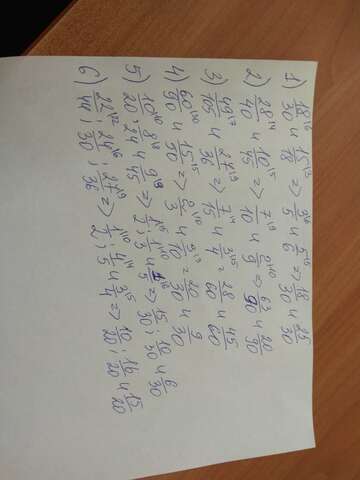 1) 18/30 \6 и 15/18 \3 => 3/5 \6 и 5/6 \5 => 18/30 и 25/30
2) 28/40 \4 и 10/45 \5 => 7/10 \9 и 2/9 \10 => 63/90 и 20/90
3) 49/105 \7 и 27/36 \9 => 7/15 \4 и 3/4 \15 = 28/60 и 45/60
4) 60/90 \30 и 15/50 \5 => 2/3 \10 и 3/10 \3 = 20/30 и 9/30
5) 10/20 \10 ; 8/24 \8 и 9/45 \9 => 1/2 \15 ; 1/3 \10 и 1/5 \6 => 15/30 ; 10/30 и 6/30
6) 22/44 ; 24/30 \6 ; 27/36 \9 => 1/2 \10 ; 4/5 \4 и 3/4 \5 => 10/20 ; 16/20 и 15/20